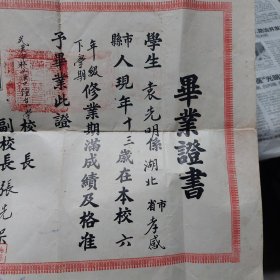 畢業證書
學生袁光明係湖北省市孝感
市縣人現年十三歲在本校六
年級下學期修業期滿成績及格准
予畢業此證
校長
副校長張先